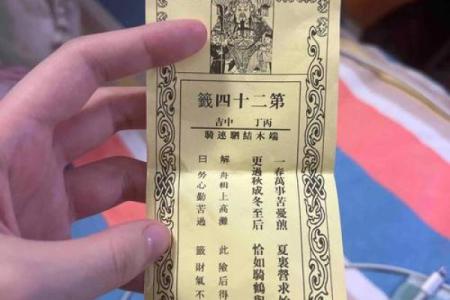 第二十四籤
丙丁 中吉
端木結駟連騎
一春萬事苦憂煎 夏裏營求
更遇秋成冬至后 恰如騎鶴與
解 舟楫上高灘 此險后得
曰 勞心勤苦過 籤 財氣不